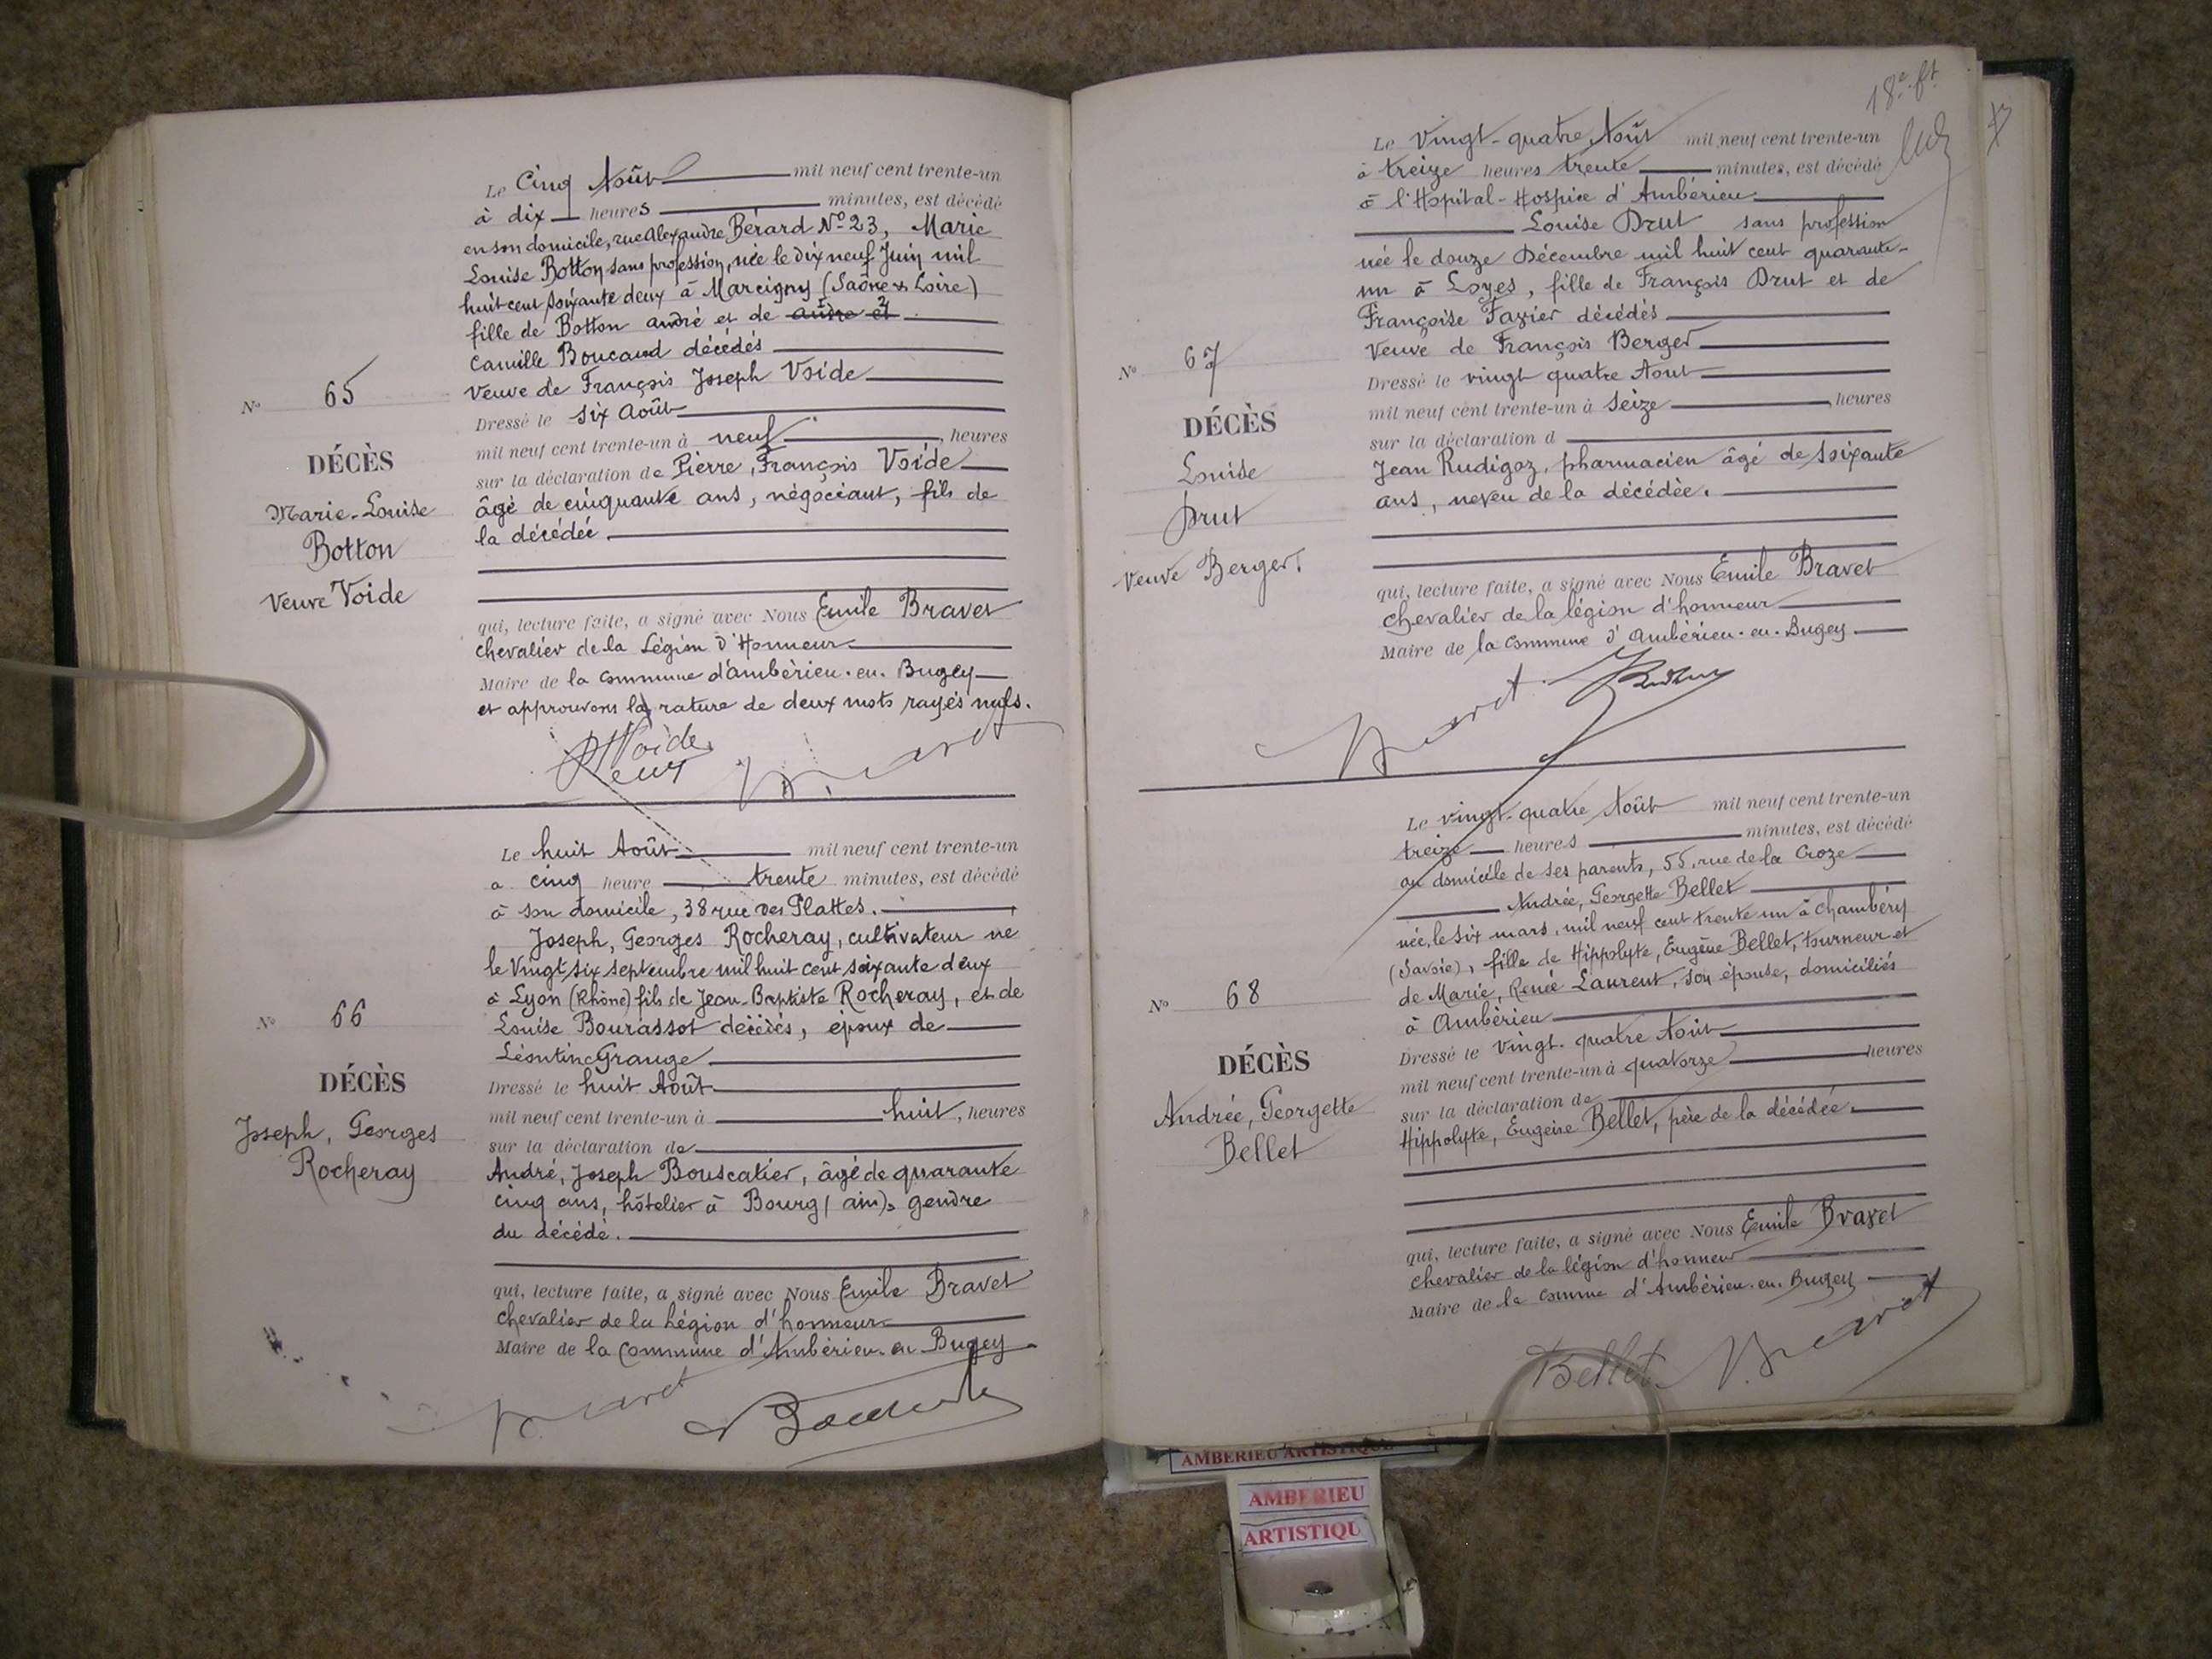 Le Cinq Août mil neuf cent trente-un
à dix heures minutes, est décédé
en son domicile, rue Alexandre Bérard N° 23, Marie
Louise Botton sans profession, née le dix neuf Juin mil
huit cent soixante deux à Marcigny (Saône & Loire)
fille de Botton andré et de
Camille Boucaud décédés
veuve de François Joseph Voide
Dressé le six Août
mil neuf cent trente-un à neuf heures
sur la déclaration de Pierre, François Voide
âgé de cinquante ans, négociant, fils de
la décédée.
qui, lecture faite, a signé avec Nous Emile Bravet
chevalier de la Légion d'Honneur
Maire de la commune d'ambérieu. en. Bugey
et approuvons la rature de deux mots rayés nuls.
N° 65
DÉCÈS
Marie-Louise
Botton
Veuve Voide
Voide
Le huit Août mil neuf cent trente-un
a cinq heure trente minutes, est décédé
à son domicile, 38 rue des Plattes.
Joseph, Georges Rocheray, cultivateur ne
le Vingt six septembre mil huit cent soixante deux
à Lyon (Rhône) fils de Jean-Baptiste Rocheray, et de
Louise Bourassot décédés, époux de
Léontine Grange
Dressé le huit Août
mil neuf cent trente-un à huit, heures
sur la déclaration de
André, Joseph Bouscatier, âgé de quarante
cinq ans, hôtelier à Bourg (ain), gendre
du décédé.
qui, lecture faite, a signé avec Nous Emile Bravet
chevalier de la Légion d'honneur
Maire de la Commune d'Ambérieu en Bugey
N° 66
DÉCÈS
Joseph, Georges
Rocheray
18e ft
Le Vingt-quatre Août mil neuf cent trente-un
à treize heures trente minutes, est décédé
à l'Hopital-Hospice d'Ambérieu
Louise Drut sans profession
née le douze Décembre mil huit cent quarante-
un à Loyes, fille de François Drut et de
Françoise Fazier décédés
Veuve de François Berger
Dressé le vingt quatre Aout
mil neuf cent trente-un à seize, heures
sur la déclaration d
Jean Rudigoz, pharmacien âgé de soixante
ans, neveu de la décédée.
qui, lecture faite, a signé avec Nous Emile Bravet
chevalier de la légion d'honneur
Maire de la commune d'ambérieu. en. Bugey
N° 67
DÉCÈS
Louise
Drut
Veuve Berger.
Bravet
Le vingt-quatre Août mil neuf cent trente-un
treize heures minutes, est décédé
au domicile de ses parents, 55, rue de la Croze
Andrée, Georgette Bellet
née, le six mars, mil neuf cent trente un à Chambéry
(Savoie), fille de Hippolyte, Eugène Bellet, tourneur et
de Marie, Renée Laurent, son épouse, domiciliés
à Ambérieu
Dressé le vingt. quatre Août
mil neuf cent trente-un à quatorze heures
sur la déclaration de
Hippolyte, Eugène Bellet, père de la décédée.
qui, lecture faite, a signé avec Nous Emile Bravet
chevalier de la légion d'honneur
Maire de la comme d'Ambérieu. en. Bugey
N° 68
DÉCÈS
Andrée, Georgette
Bellet
Bellet Bravet
AMBERIEU ARTISTIQUE
AMBERIEU
ARTISTIQU